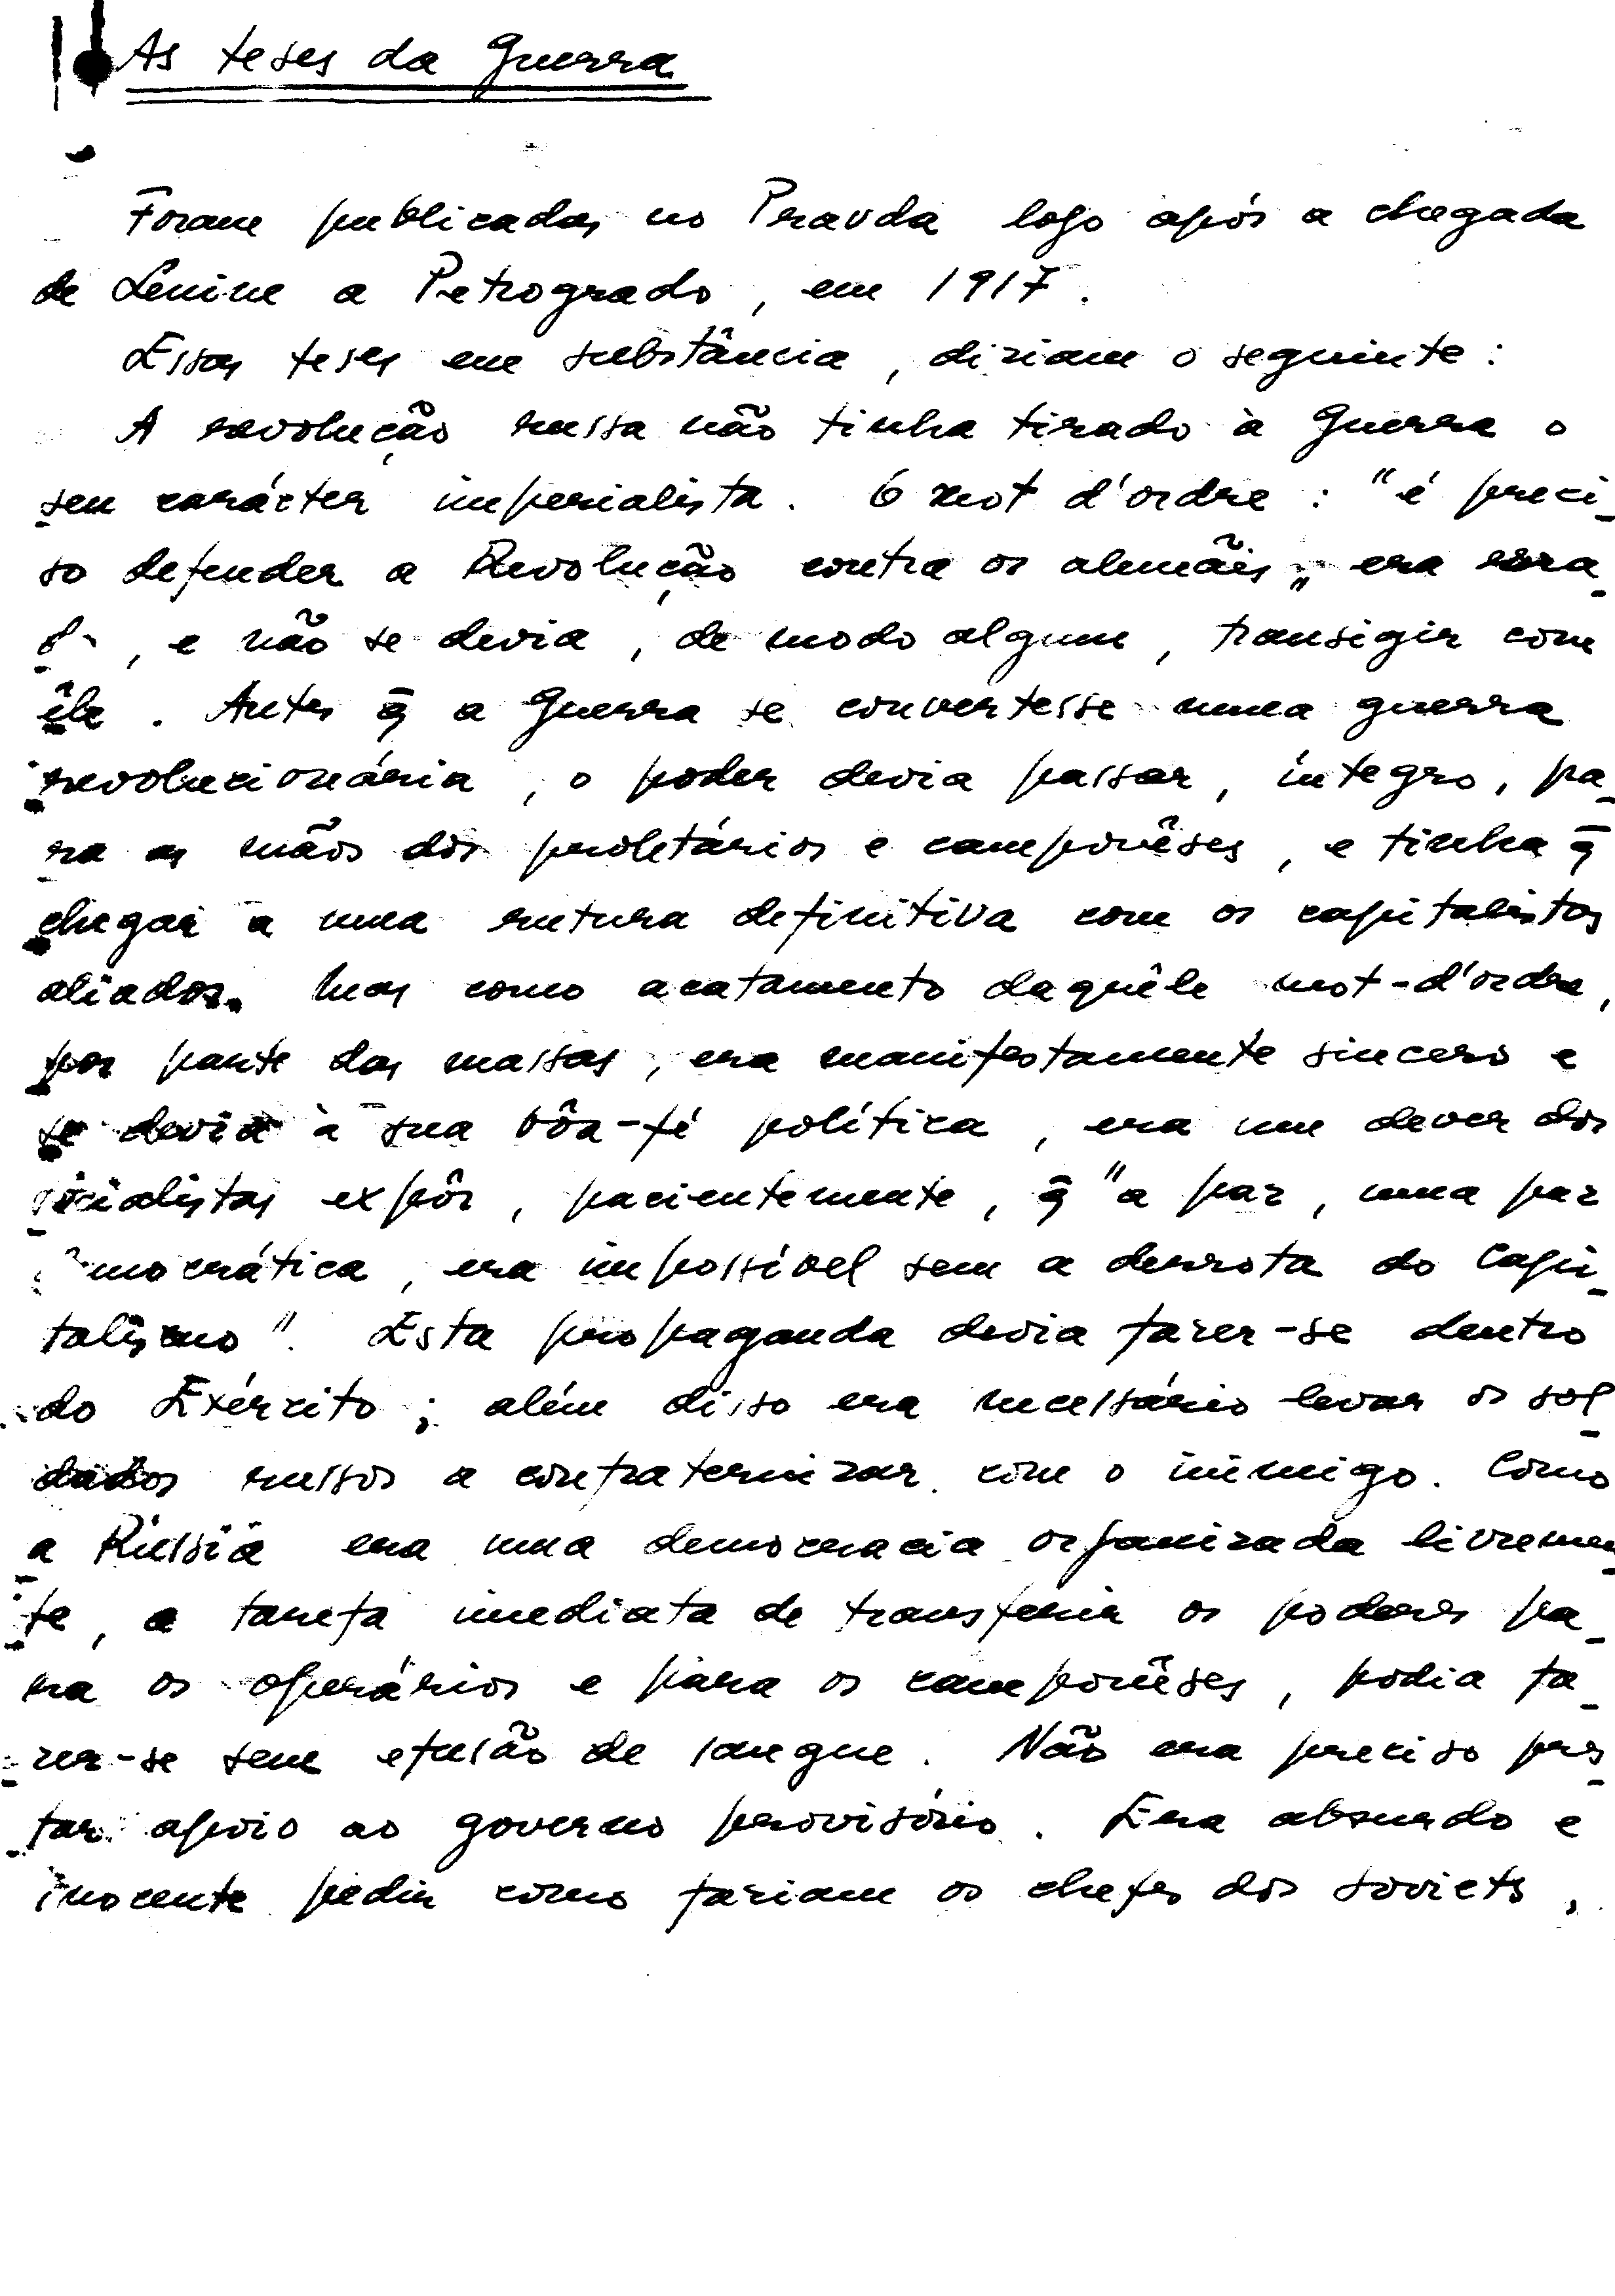 As teses da Guerra
Foram publicadas no Pravda logo após a chegada
de Lenine a Petrogrado, em 1917.
Essas teses em substância, diziam o seguinte:
A revolução russa não tinha tirado à Guerra o
seu carácter imperialista. O mot d'ordre: "é preci-
so defender a Revolução contra os alemãis" era erra-
, e não se devia, de modo algum, transigir com
êle. Antes q̄ a Guerra se convertesse numa guerra
revolucionária, o poder devia passar, íntegro, pa-
ra as mãos dos proletários e camponêses, e tinha q̄
chegar a uma rutura definitiva com os capitalistas
aliados. Mas como acatamento daquêle mot-d'ordre,
por parte das massas, era manifestamente sincero e
se devia à sua bôa-fé política, era um dever dos
socialistas expôr, pacientemente, q̄ "a paz, uma paz
democrática, era impossível sem a derrota do Capi-
talismo". Esta propaganda devia fazer-se dentro
do Exército; além disso era necessário levar os sol-
dados russos a confraternizar com o inimigo. Como
a Rússia era uma democracia organizada livremen-
te, a tarefa imediata de transferir os poderes pa-
ra os operários e para os camponêses, podia fa-
zer-se sem efusão de sangue. Não era preciso pres-
tar apoio ao governo provisório. Era absurdo e
inocente pedir como faziam os chefes dos soviets,